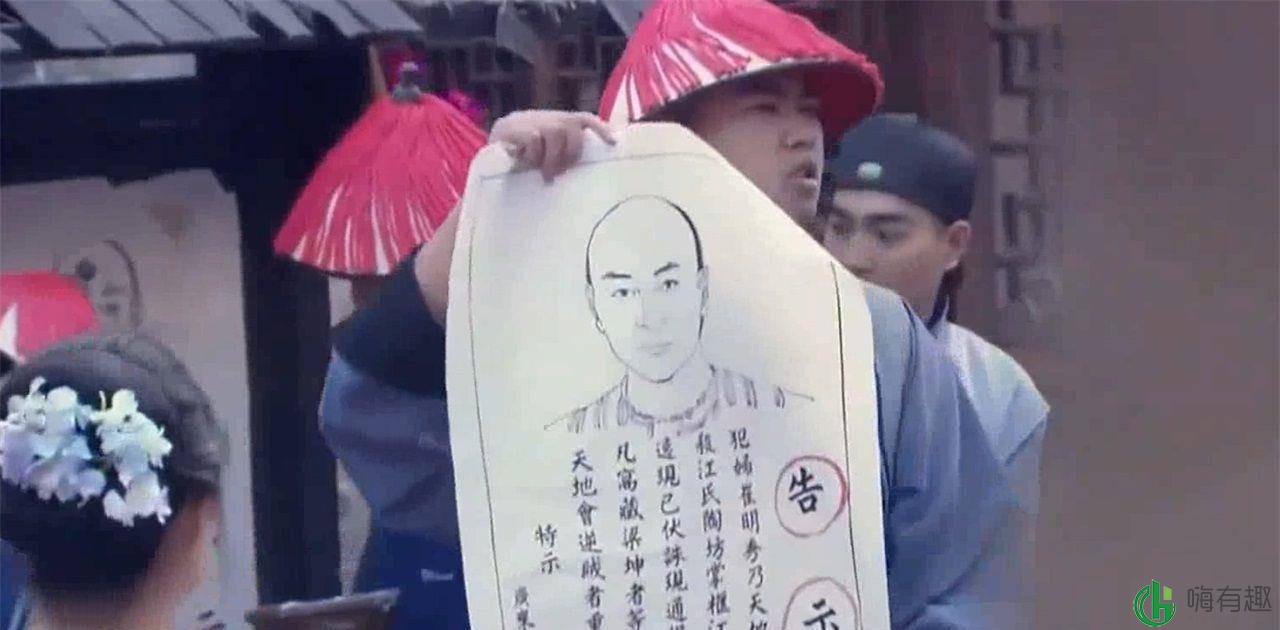 告示
犯婦崔明秀乃天地
殺江氏陶坊掌櫃江
遠現已伏誅現通
凡窩藏梁坤者等
天地會逆賊者重
特示
廣東
嗨有趣